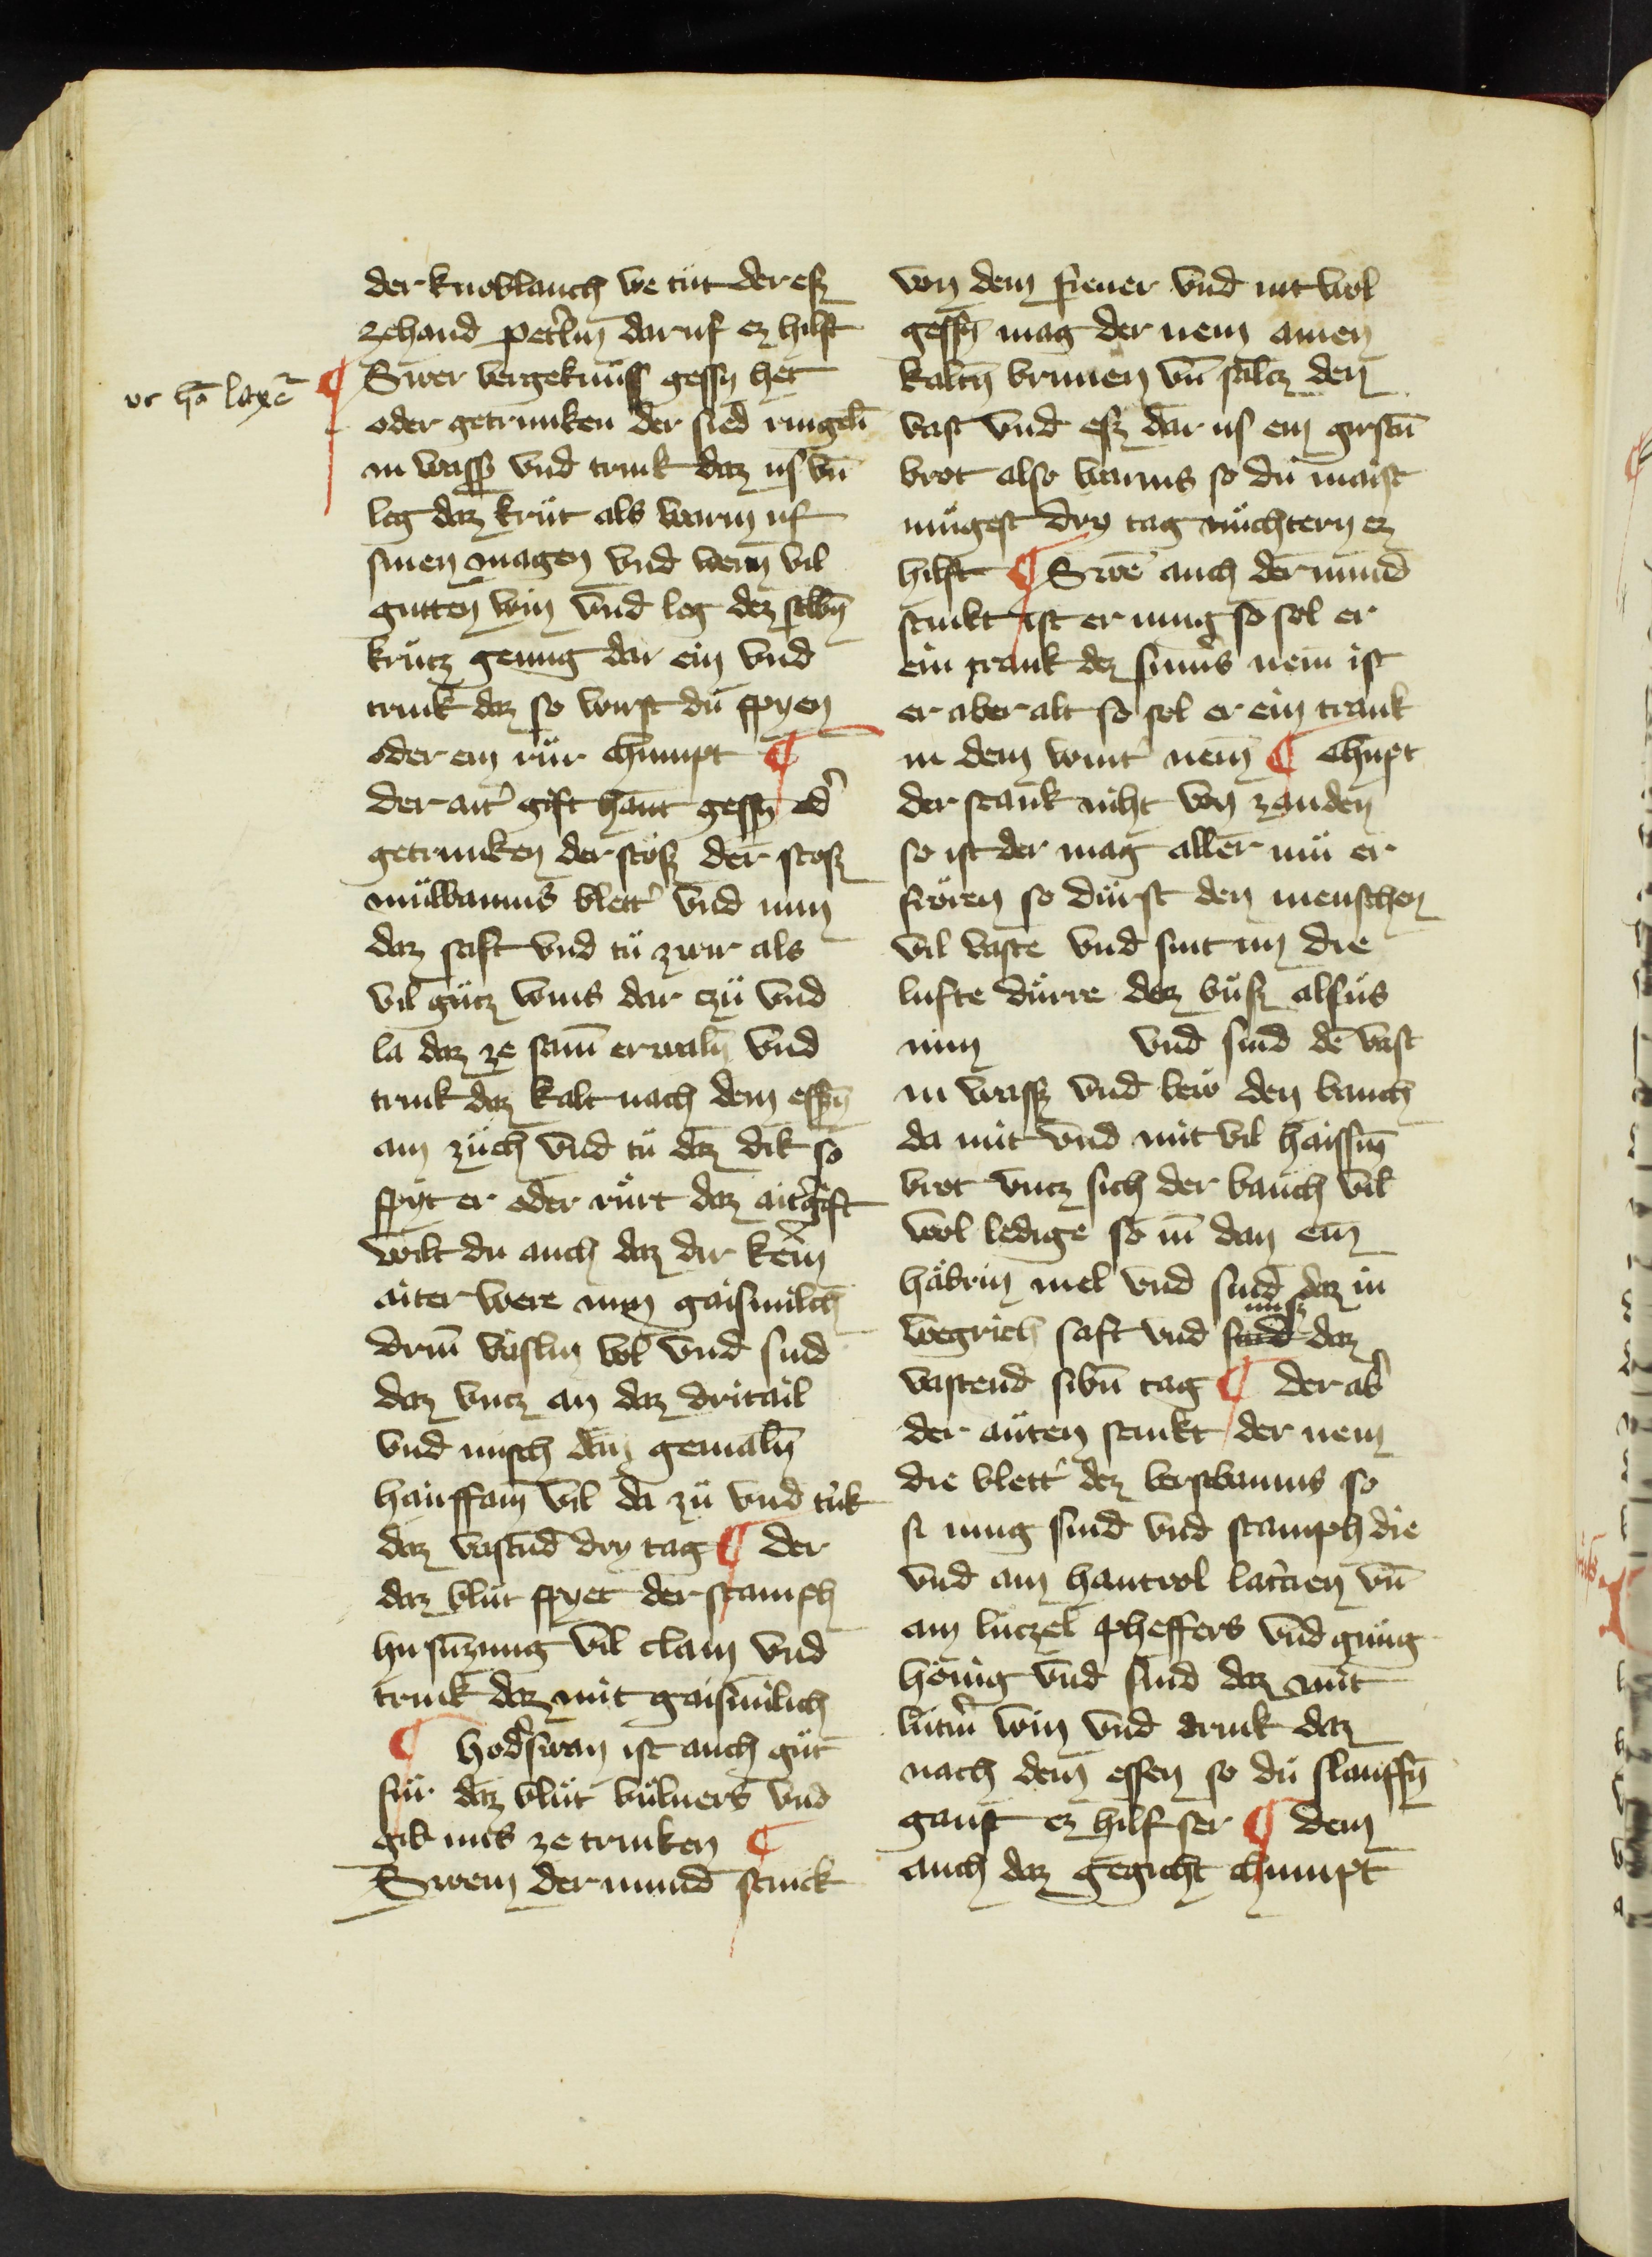 der knoblauch we tüt der esz
zehand pet'lin dar uf ez hilft
ur hō laxē
¶ Swer vergeknüss gessn het
oder getrunken der sied ringeln̄
in wassz vnd trink daz us vn̄
leg daz krut als warm uf
sinen magen vnd nem vil
gutten win vnd leg dez selbn̄
krutz genug dar ein vnd
trink daz so wirst du spyen
oder ein rür chumpt ¶
der ait' gift haut gessn od'
getrunken der stösz der stosz
mülbaums blett' vnd nim
daz saft vnd tü zwir als
vil gutz wins dar zü vnd
la daz ze sam̄ erwaln̄ vnd
trink daz kalt nach dem essn̄
ain züch vnd tü daz dik so
spyt er oder rürt daz ait'gift
wilt du auch daz dir kein
aiter werre nim gaismilch
drin̄ väslin vol vnd sud
daz vncz an daz dritail
vnd misch dan gemaln̄
hanffsam vil da zü vnd t'ink
daz vastūd dry tag ¶ der
daz blüt spyet der stamph
huszung vil clain vnd
trink daz mit gaismilich
¶ hod'swan ist auch güt
für daz blüt vülners vnd
gib ims ze trinken ¶
Swem der mund stinck
von dem fieuer vnd nit wol
gessn̄ mag der nem ainen
kaltn̄ brunen vn̄ saltz den
vast vnd esz dar us ein girstin̄
brot also warms so du maist
mügest dry tag nüchtern ez
hilft ¶ Swē auch der mund
stinkt ist er iung so sol er
ein trank dez sum̄'s nem ist
er aber alt so sol er ein trank
in dem wint' nem̄ ¶ Chūpt
der stank niht von zanden
so ist der mag aller mü er
frören so dürst den menschen
vil vaste vnd sint im die
lufte dürre daz büsz alsus
nim vnd sind dē vast
in wassz vnd bew den bauch
da mit vnd mit vil haissm̄
brot vncz sich der bauch vil
wol ledige so nī dan ein
häbrin mel vnd sud daz in
wegrich saft vnd nusz daz
vastend sibn̄ tag ¶ der ab'
der auten stinkt der nem
die blett' dez bersbaums so
si iung sind vnd stamph die
vnd ain hantvol lat'ien vn̄
ain lutzel pheffers vnd gnüg
hönig vnd sud daz mit
lut'm win vnd drink daz
nach dem essen so du slauffn̄
gaust ez hilf ser ¶ dem
auch daz gegicht chumpt